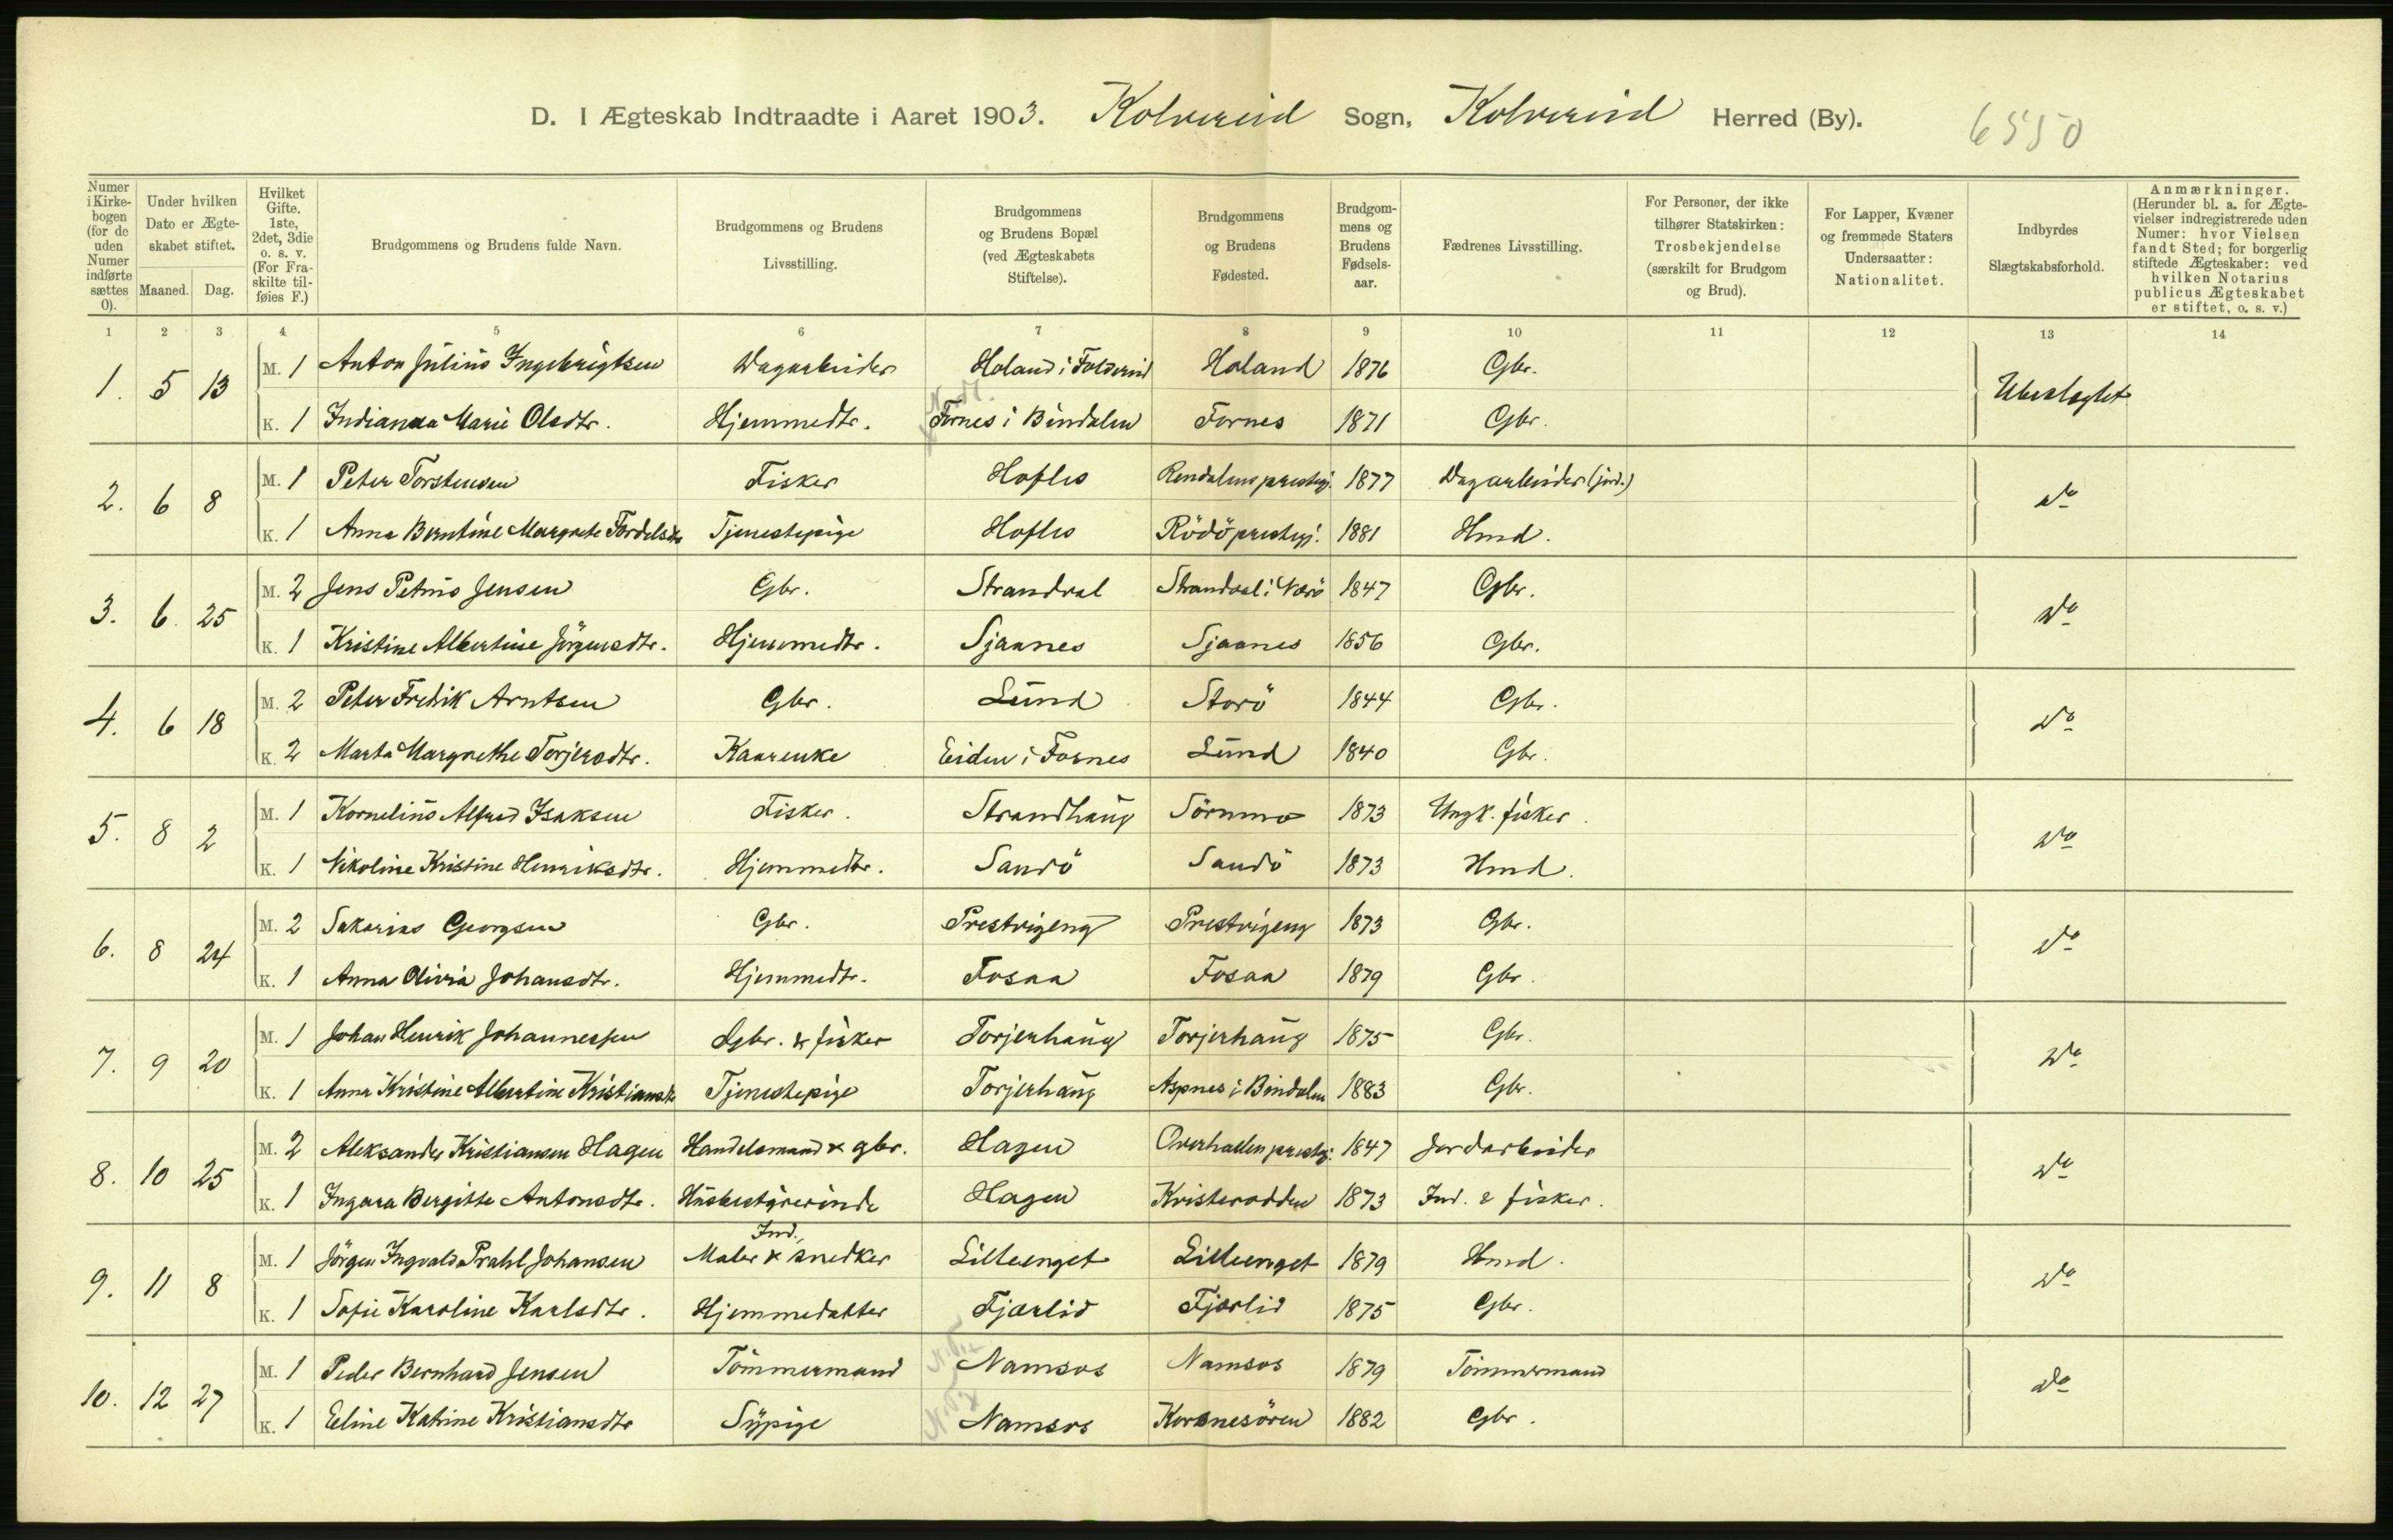 D. I Ægteskab Indtraadte i Aaret 1903. Kolvereid Sogn, Kolvereid Herred (By). 6550
Numer i Kirkebogen (for de uden Numer indførte sættes 0).
Under hvilken Dato er Ægteskabet stiftet.
Maaned. Dag.
Hvilket Gifte. 1ste, 2det, 3die o. s. v. (For Fraskilte tilføies F.)
Brudgommens og Brudens fulde Navn.
Brudgommens og Brudens Livsstilling.
Brudgommens og Brudens Bopæl (ved Ægteskabets Stiftelse).
Brudgommens og Brudens Fødested.
Brudgommens og Brudens Fødselsaar.
Fædrenes Livsstilling.
For Personer, der ikke tilhører Statskirken: Trosbekjendelse (særskilt for Brudgom og Brud).
For Lapper, Kvæner og fremmede Staters Undersaatter: Nationalitet.
Indbyrdes Slægtskabsforhold.
Anmærkninger. (Herunder bl. a. for Ægtevielser indregistrerede uden Numer: hvor Vielsen fandt Sted; for borgerlig stiftede Ægteskaber: ved hvilken Notarius publicus Ægteskabet er stiftet, o. s. v.)
1 2 3 4 5 6 7 8 9 10 11 12 13 14
1. 5 13 M. 1 Anton Julius Ingebrigtsen Dagarbeider Holand i Foldereid Holand 1876 Gbr. Ubeslægtet
K. 1 Indianna Marie Olsdtr. Hjemmedtr. Fornes i Bindalen Fornes 1871 Gbr.
2. 6 8 M. 1 Peter Torstensen Fisker Hofles Rendalens prestegj. 1877 Dagarbeider (jord.) do
K. 1 Anna Berntine Margrete Tordelsdtr Tjenestepige Hofles Rödö prestegj. 1881 Hmd.
3. 6 25 M. 2 Jens Petrus Jensen Gbr. Strandval Strandval i Nærö 1847 Gbr. do
K. 1 Kristine Albertine Jörgensdtr. Hjemmedtr. Sjaanes Sjaanes 1856 Gbr.
4. 6 18 M. 2 Peter Fredrik Arntsen Gbr. Lund Storö 1844 Gbr. do
K. 2 Marta Margrethe Torjersdtr. Kaarenke Eiden i Fosnes Lund 1840 Gbr.
5. 8 2 M. 1 Kornelius Alfred Isaksen Fisker. Strandhaug Sörummo 1873 Ungk. fisker. do
K. 1 Nikoline Kristine Henriksdtr. Hjemmedtr. Sandö Sandö 1873 Hmd.
6. 8 24 M. 2 Sakarias Georgsen Gbr. Prestvigeng Prestvigeng 1873 Gbr. do
K. 1 Anna Olivia Johansdtr. Hjemmedtr. Fosaa Fosaa 1879 Gbr.
7. 9 20 M. 1 Johan Henrik Johannessen Gbr. & fisker Torjerhaug Torjerhaug 1875 Gbr. do
K. 1 Anna Kristine Albertine Kristiansdtr Tjenestepige Torjerhaug Aspnes i Bindalen 1883 Gbr.
8. 10 25 M. 2 Aleksander Kristiansen Hagen Handelsmand & gbr. Hagen Overhallen prestegj. 1847 Jordarbeider do
K. 1 Ingara Bergitte Antonsdtr. Husbestyrerinde Hagen Kristerodden 1873 Ind. & fisker.
Ind.
9. 11 8 M. 1 Jörgen Ingvald Prahl Johansen Maler & snedker Lilleenget Lilleenget 1879 Hmd. do
K. 1 Sofie Karoline Karlsdtr. Hjemmedatter Fjærlid Fjærlid 1875 Gbr.
10. 12 27 M. 1 Peder Bernhard Jensen Tömmermand Namsos Namsos 1879 Tömmermand do
K. 1 Eeline Katrine Kristiansdtr Sypige Namsos Korsnesören 1882 Gbr.